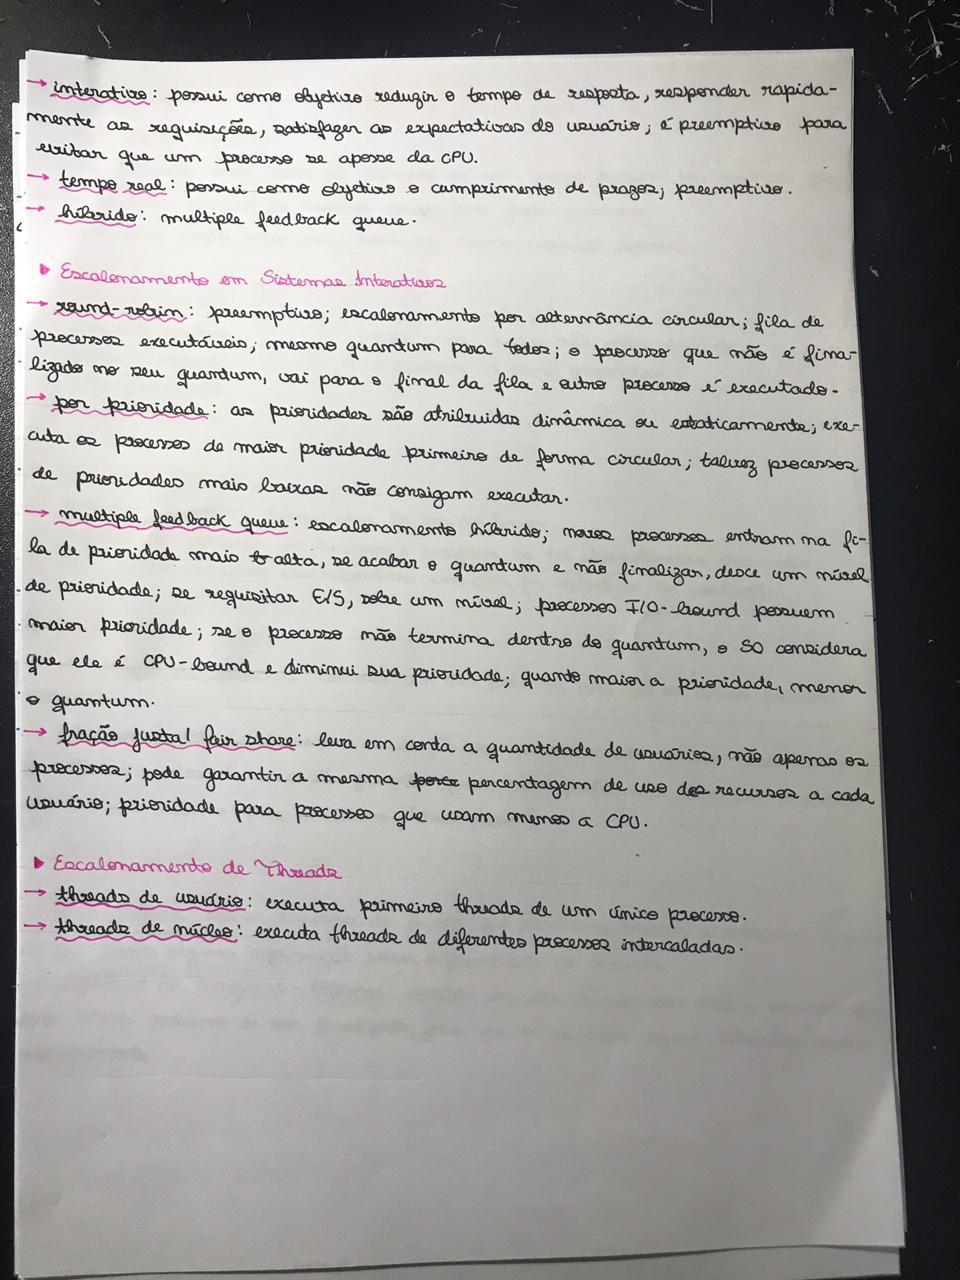 → interativo: possui como objetivo reduzir o tempo de resposta, responder rapida-
mente as requisições, satisfazer as expectativas do usuário; é preemptivo para
evitar que um processo se aposse da CPU.
→ tempo real: possui como objetivo o cumprimento de prazos; preemptivo.
→ híbrido: multiple feedback queue.
▶ Escalonamento em Sistemas Interativos
→ round-robin: preemptivo; escalonamento por alternância circular; fila de
processos executáveis; mesmo quantum para todos; o processo que não é fina-
lizado no seu quantum, vai para o final da fila e outro processo é executado.
→ por prioridade: as prioridades são atribuidas dinâmica ou estaticamente; exe-
cuta os processos de maior prioridade primeiro de forma circular; talvez processos
de prioridades mais baixas não consigam executar.
→ multiple feedback queue: escalonamento híbrido; novos processos entram na fi-
la de prioridade mais alta, se acabar o quantum e não finalizar, desce um nível
de prioridade; se requisitar E/S, sobe um nível; processos I/O-bound possuem
maior prioridade; se o processo não termina dentro do quantum, o SO considera
que ele é CPU-bound e diminui sua prioridade; quanto maior a prioridade, menor
o quantum.
→ fração justa/ fair share: leva em conta a quantidade de usuários, não apenas os
processos; pode garantir a mesma percentagem de uso dos recursos a cada
usuário; prioridade para processos que usam menos a CPU.
▶ Escalonamento de Threads
→ threads de usuário: executa primeiro threads de um único processo.
→ threads de núcleo: executa threads de diferentes processos intercaladas.